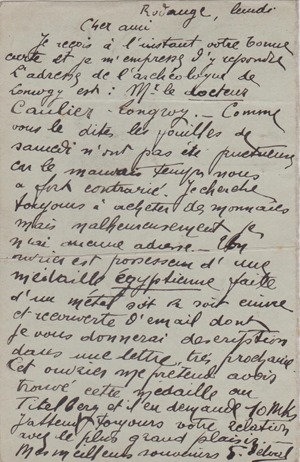 Rodange, lundi
Cher ami
Je reçois à l'instant votre bonne
carte et je m'empresse d'y répondre
L'adresse de l'archéologue de
Longwy est : Mr. le docteur
Caulier - Longwy. - Comme
vous le dites les fouilles de
samedi n'ont pas été fructueuses
car le mauvais temps nous
a fort contrarié. Je cherche
toujours à acheter des monnaies
mais malheureusement je
n'ai aucune adresse - Un
ouvrier est possesseur d'une
médaille égyptienne faite
d'un métal soit soit cuivre
et recouverte d'email dont
je vous donnerai description
dans une lettre très prochaine
Cet ouvrier me prétend avoir
trouvé cette medaille au
Titelberg et il en demande 10 Mks
J'attends toujours votre relation
avec le plus grand plaisir
Mes meilleurs souvenirs